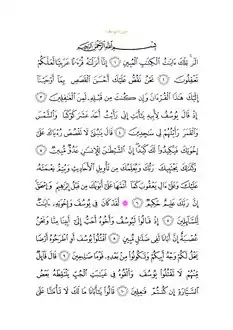 سورة يوسف
بِسْمِ اللَّهِ الرَّحْمَٰنِ الرَّحِيمِ
الٓر تِلْكَ ءَايَٰتُ ٱلْكِتَٰبِ ٱلْمُبِينِ ١ إِنَّآ أَنزَلْنَٰهُ قُرْءَٰنًا عَرَبِيًّا لَّعَلَّكُمْ
تَعْقِلُونَ ٢ نَحْنُ نَقُصُّ عَلَيْكَ أَحْسَنَ ٱلْقَصَصِ بِمَآ أَوْحَيْنَآ
إِلَيْكَ هَٰذَا ٱلْقُرْءَانَ وَإِن كُنتَ مِن قَبْلِهِۦ لَمِنَ ٱلْغَٰفِلِينَ
٣ إِذْ قَالَ يُوسُفُ لِأَبِيهِ يَٰٓأَبَتِ إِنِّى رَأَيْتُ أَحَدَ عَشَرَ كَوْكَبًا وَٱلشَّمْسَ
وَٱلْقَمَرَ رَأَيْتُهُمْ لِى سَٰجِدِينَ ٤ قَالَ يَٰبُنَىَّ لَا تَقْصُصْ رُءْيَاكَ عَلَىٰٓ
إِخْوَتِكَ فَيَكِيدُوا۟ لَكَ كَيْدًا إِنَّ ٱلشَّيْطَٰنَ لِلْإِنسَٰنِ عَدُوٌّ مُّبِينٌ ٥
وَكَذَٰلِكَ يَجْتَبِيكَ رَبُّكَ وَيُعَلِّمُكَ مِن تَأْوِيلِ ٱلْأَحَادِيثِ وَيُتِمُّ نِعْمَتَهُۥ
عَلَيْكَ وَعَلَىٰٓ ءَالِ يَعْقُوبَ كَمَآ أَتَمَّهَا عَلَىٰٓ أَبَوَيْكَ مِن قَبْلُ إِبْرَٰهِيمَ وَإِسْحَٰقَ
إِنَّ رَبَّكَ عَلِيمٌ حَكِيمٌ ٦ لَّقَدْ كَانَ فِى يُوسُفَ وَإِخْوَتِهِۦٓ ءَايَٰتٌ
لِّلسَّآئِلِينَ ٧ إِذْ قَالُوا۟ لَيُوسُفُ وَأَخُوهُ أَحَبُّ إِلَىٰٓ أَبِينَا مِنَّا وَنَحْنُ
عُصْبَةٌ إِنَّ أَبَانَا لَفِى ضَلَٰلٍ مُّبِينٍ ٨ ٱقْتُلُوا۟ يُوسُفَ أَوِ ٱطْرَحُوهُ أَرْضًا
يَخْلُ لَكُمْ وَجْهُ أَبِيكُمْ وَتَكُونُوا۟ مِنۢ بَعْدِهِۦ قَوْمًا صَٰلِحِينَ ٩ قَالَ قَآئِلٌ
مِّنْهُمْ لَا تَقْتُلُوا۟ يُوسُفَ وَأَلْقُوهُ فِى غَيَٰبَتِ ٱلْجُبِّ يَلْتَقِطْهُ بَعْضُ
ٱلسَّيَّارَةِ إِن كُنتُمْ فَٰعِلِينَ ١٠ قَالُوا۟ يَٰٓأَبَانَا مَا لَكَ لَا تَأْمَ۫نَّا عَلَىٰ